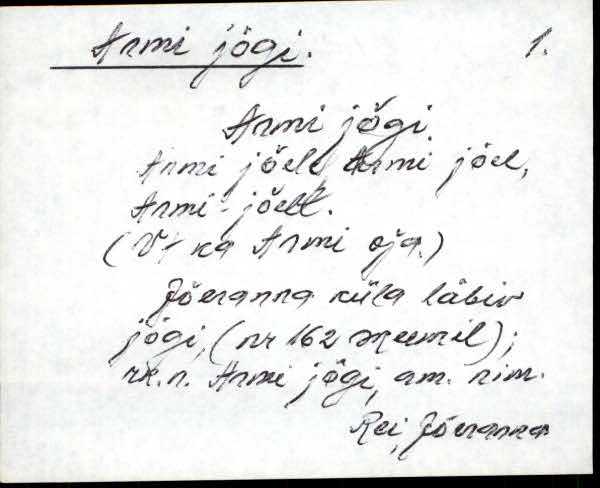 Armi jõgi. 1.
Armi jõgi
Armi jõele Armi jõel,
Armi jõelt.
(Vt ka Armi oja.)
Jõeranna küla läbiv
jõgi, (nr 162 skeemil);
rk.n. Armi jõgi, am. nim.
Rei, Jõeranna